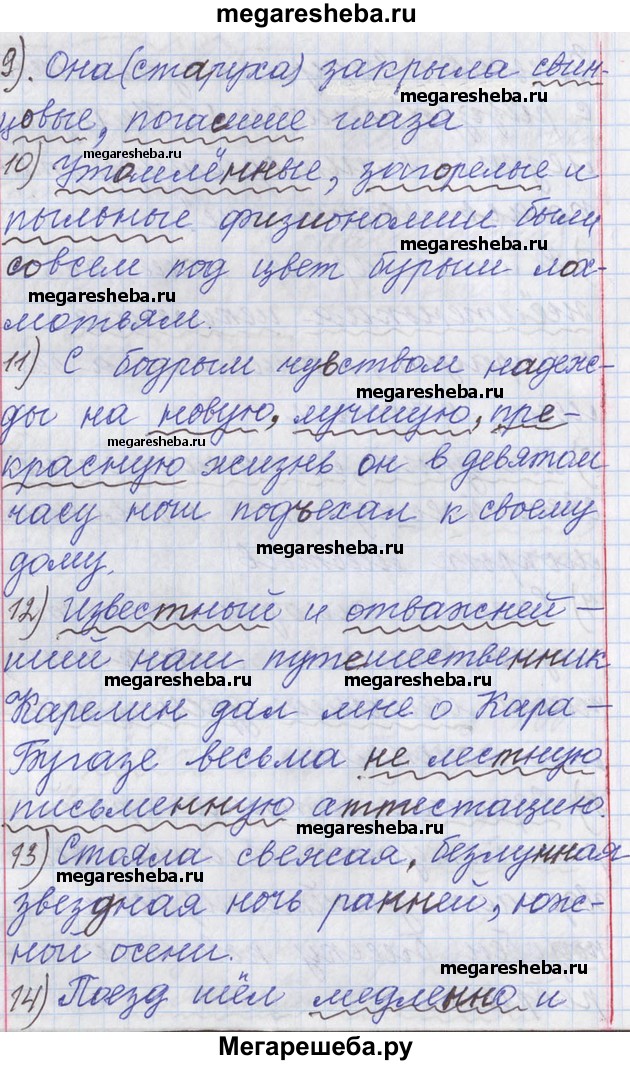 megaresheba.ru
9). Она (старуха) закрыла свин-
megaresheba.ru
цовые, погасшие глаза
megaresheba.ru
10) Утомлённые, загорелые и
пыльные физиономии были
megaresheba.ru
совсем под цвет бурым лох-
megaresheba.ru
мотьям.
11) С бодрым чувством надеж-
megaresheba.ru
ды на новую, лучшую, пре-
megaresheba.ru
красную жизнь он в девятом
часу ночи подъехал к своему
megaresheba.ru
дому.
12) Известный и отважней-
ший наш путешественник
megaresheba.ru megaresheba.ru
Карелин дал мне о Кара-
Бугазе весьма не лестную
письменную аттестацию.
megaresheba.ru
13) Стояла свежая, безлунная
megaresheba.ru
звездная ночь ранней, юж-
ной осени.
megaresheba.ru
14) Поезд шёл медленно и
Мегарешеба.ру